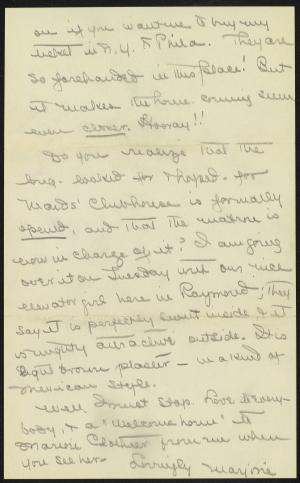 on if you want me to buy my
ticket in N.Y. to Phila. They are
so forehanded in this place! But
it makes the home coming seem
even closer. Hooray!!
Do you realize that the
long-looked for & hoped-for
Maids' Clubhouse is formally
opened, and that the matron is
now in charge of it? I am going
over it on Tuesday with our nice
elevator girl here in Raymond; they
say it is perfectly swell inside & it
is mighty attractive outside. It is
light brown plaster – in a kind of
Mexican style.
Well I must stop. Love to every-
body, & a "welcome home" to
Marion from me when
you see her.
Lovingly